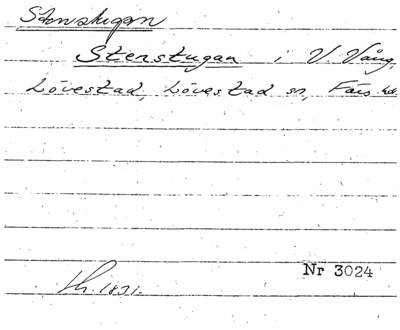 Stenstugan
Stenstugan i V. Vång,
Lövestad, Lövestad sn, Färs hd.
Nr 3024
Lh. 1831.